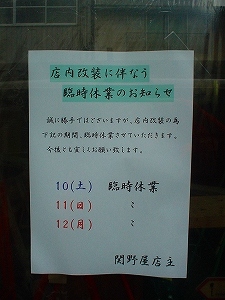 店内改装に伴なう
臨時休業のお知らせ
誠に勝手ではございますが、店内改装の為
下記の期間、臨時休業させていただきます。
今後とも宜しくお願い致します。
10(土) 臨時休業
11(日) 〃
12(月) 〃
関野屋店主